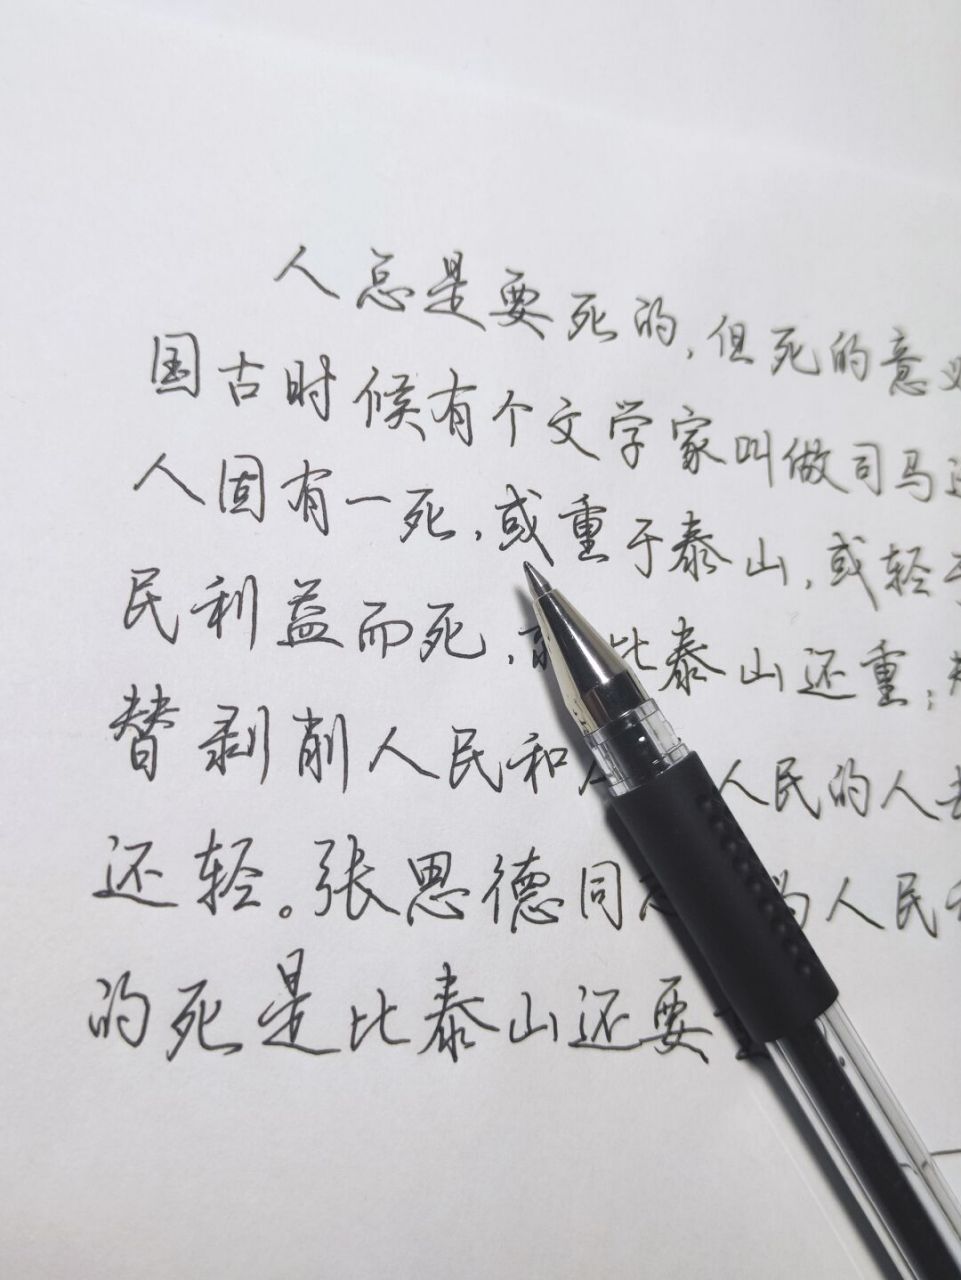 人总是要死的,但死的意
国古时候有个文学家叫做司马
人固有一死,或重于泰山,或轻
民利益而死,比泰山还重;
替剥削人民和人民的人
还轻。张思德同为人民
的死是比泰山还要